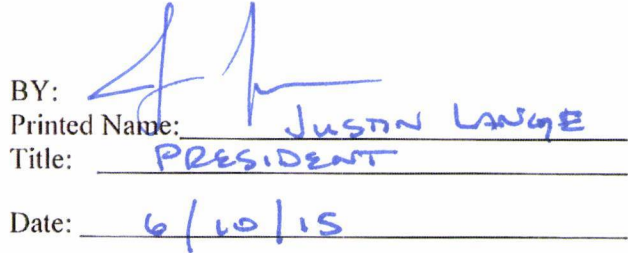 BY:
Printed Name: JUSTIN LANGE
Title: PRESIDENT
Date: 6/10/15